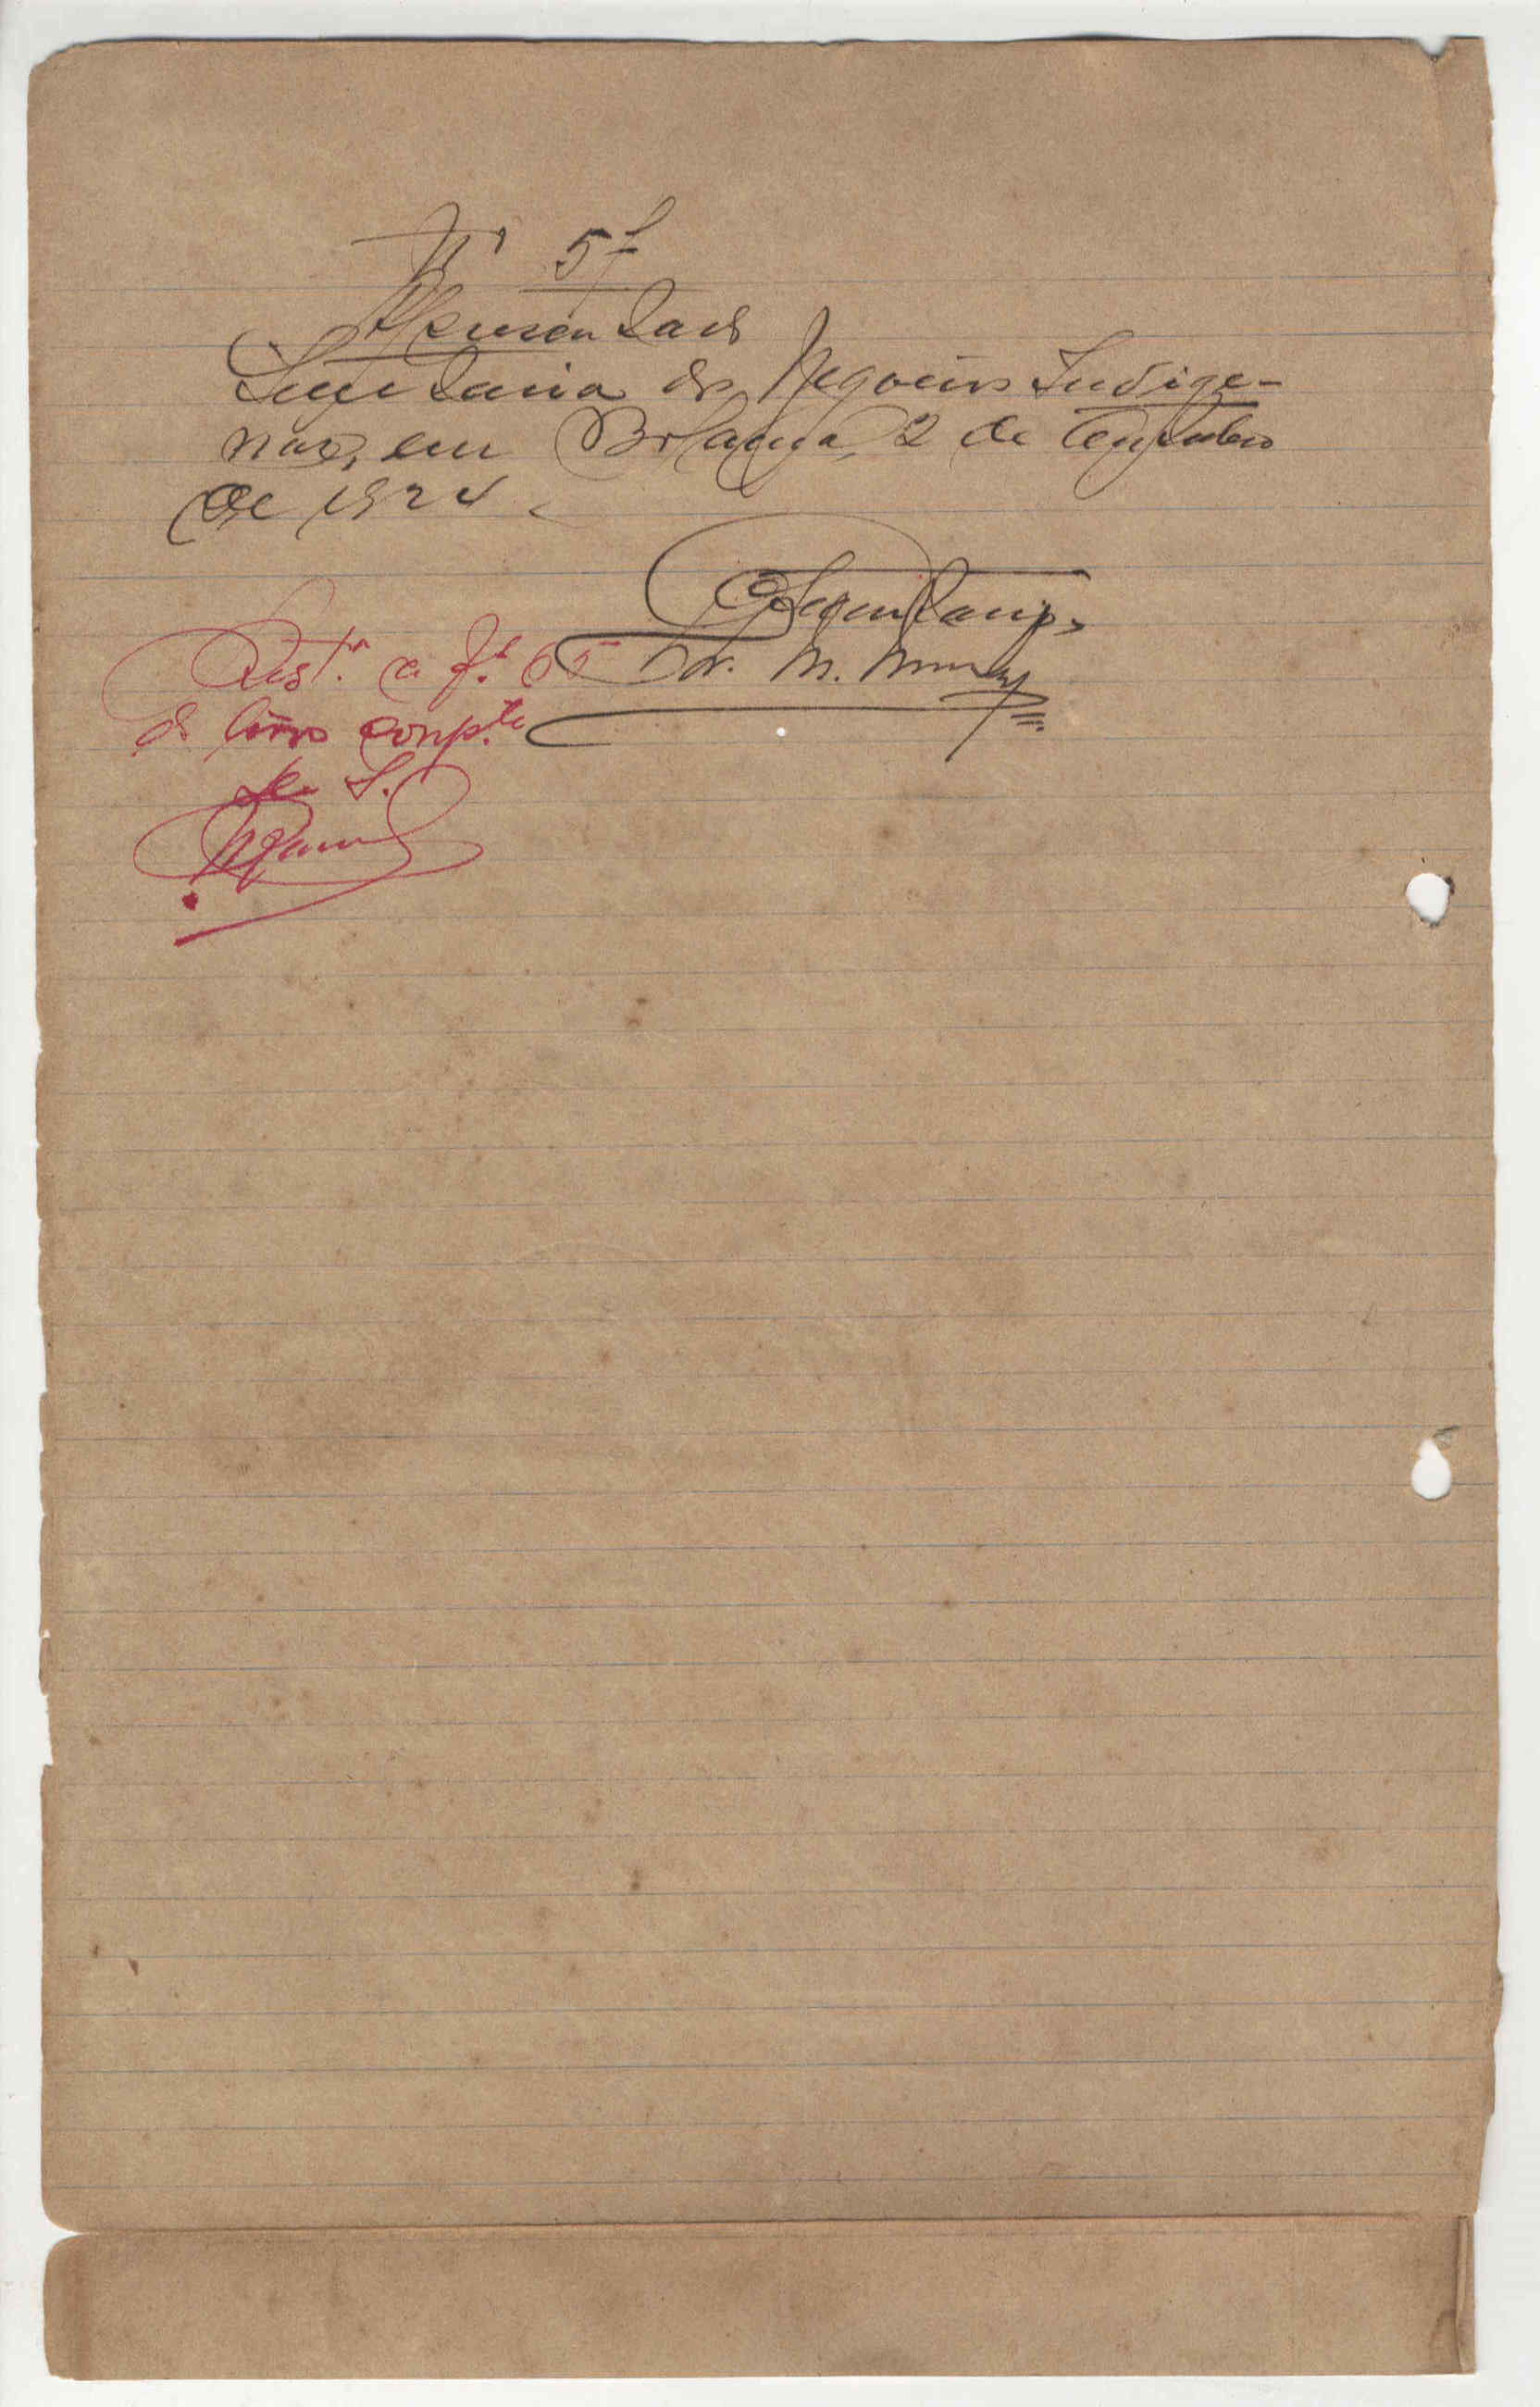 Nº 57
Apresentado
Secretaria dos Negocios Indige-
nas, em Bolama, 2 de Setembro
de 1924.
O Secretario,
Dr. M.
Regt.º a fs. 65
do livro comp.te